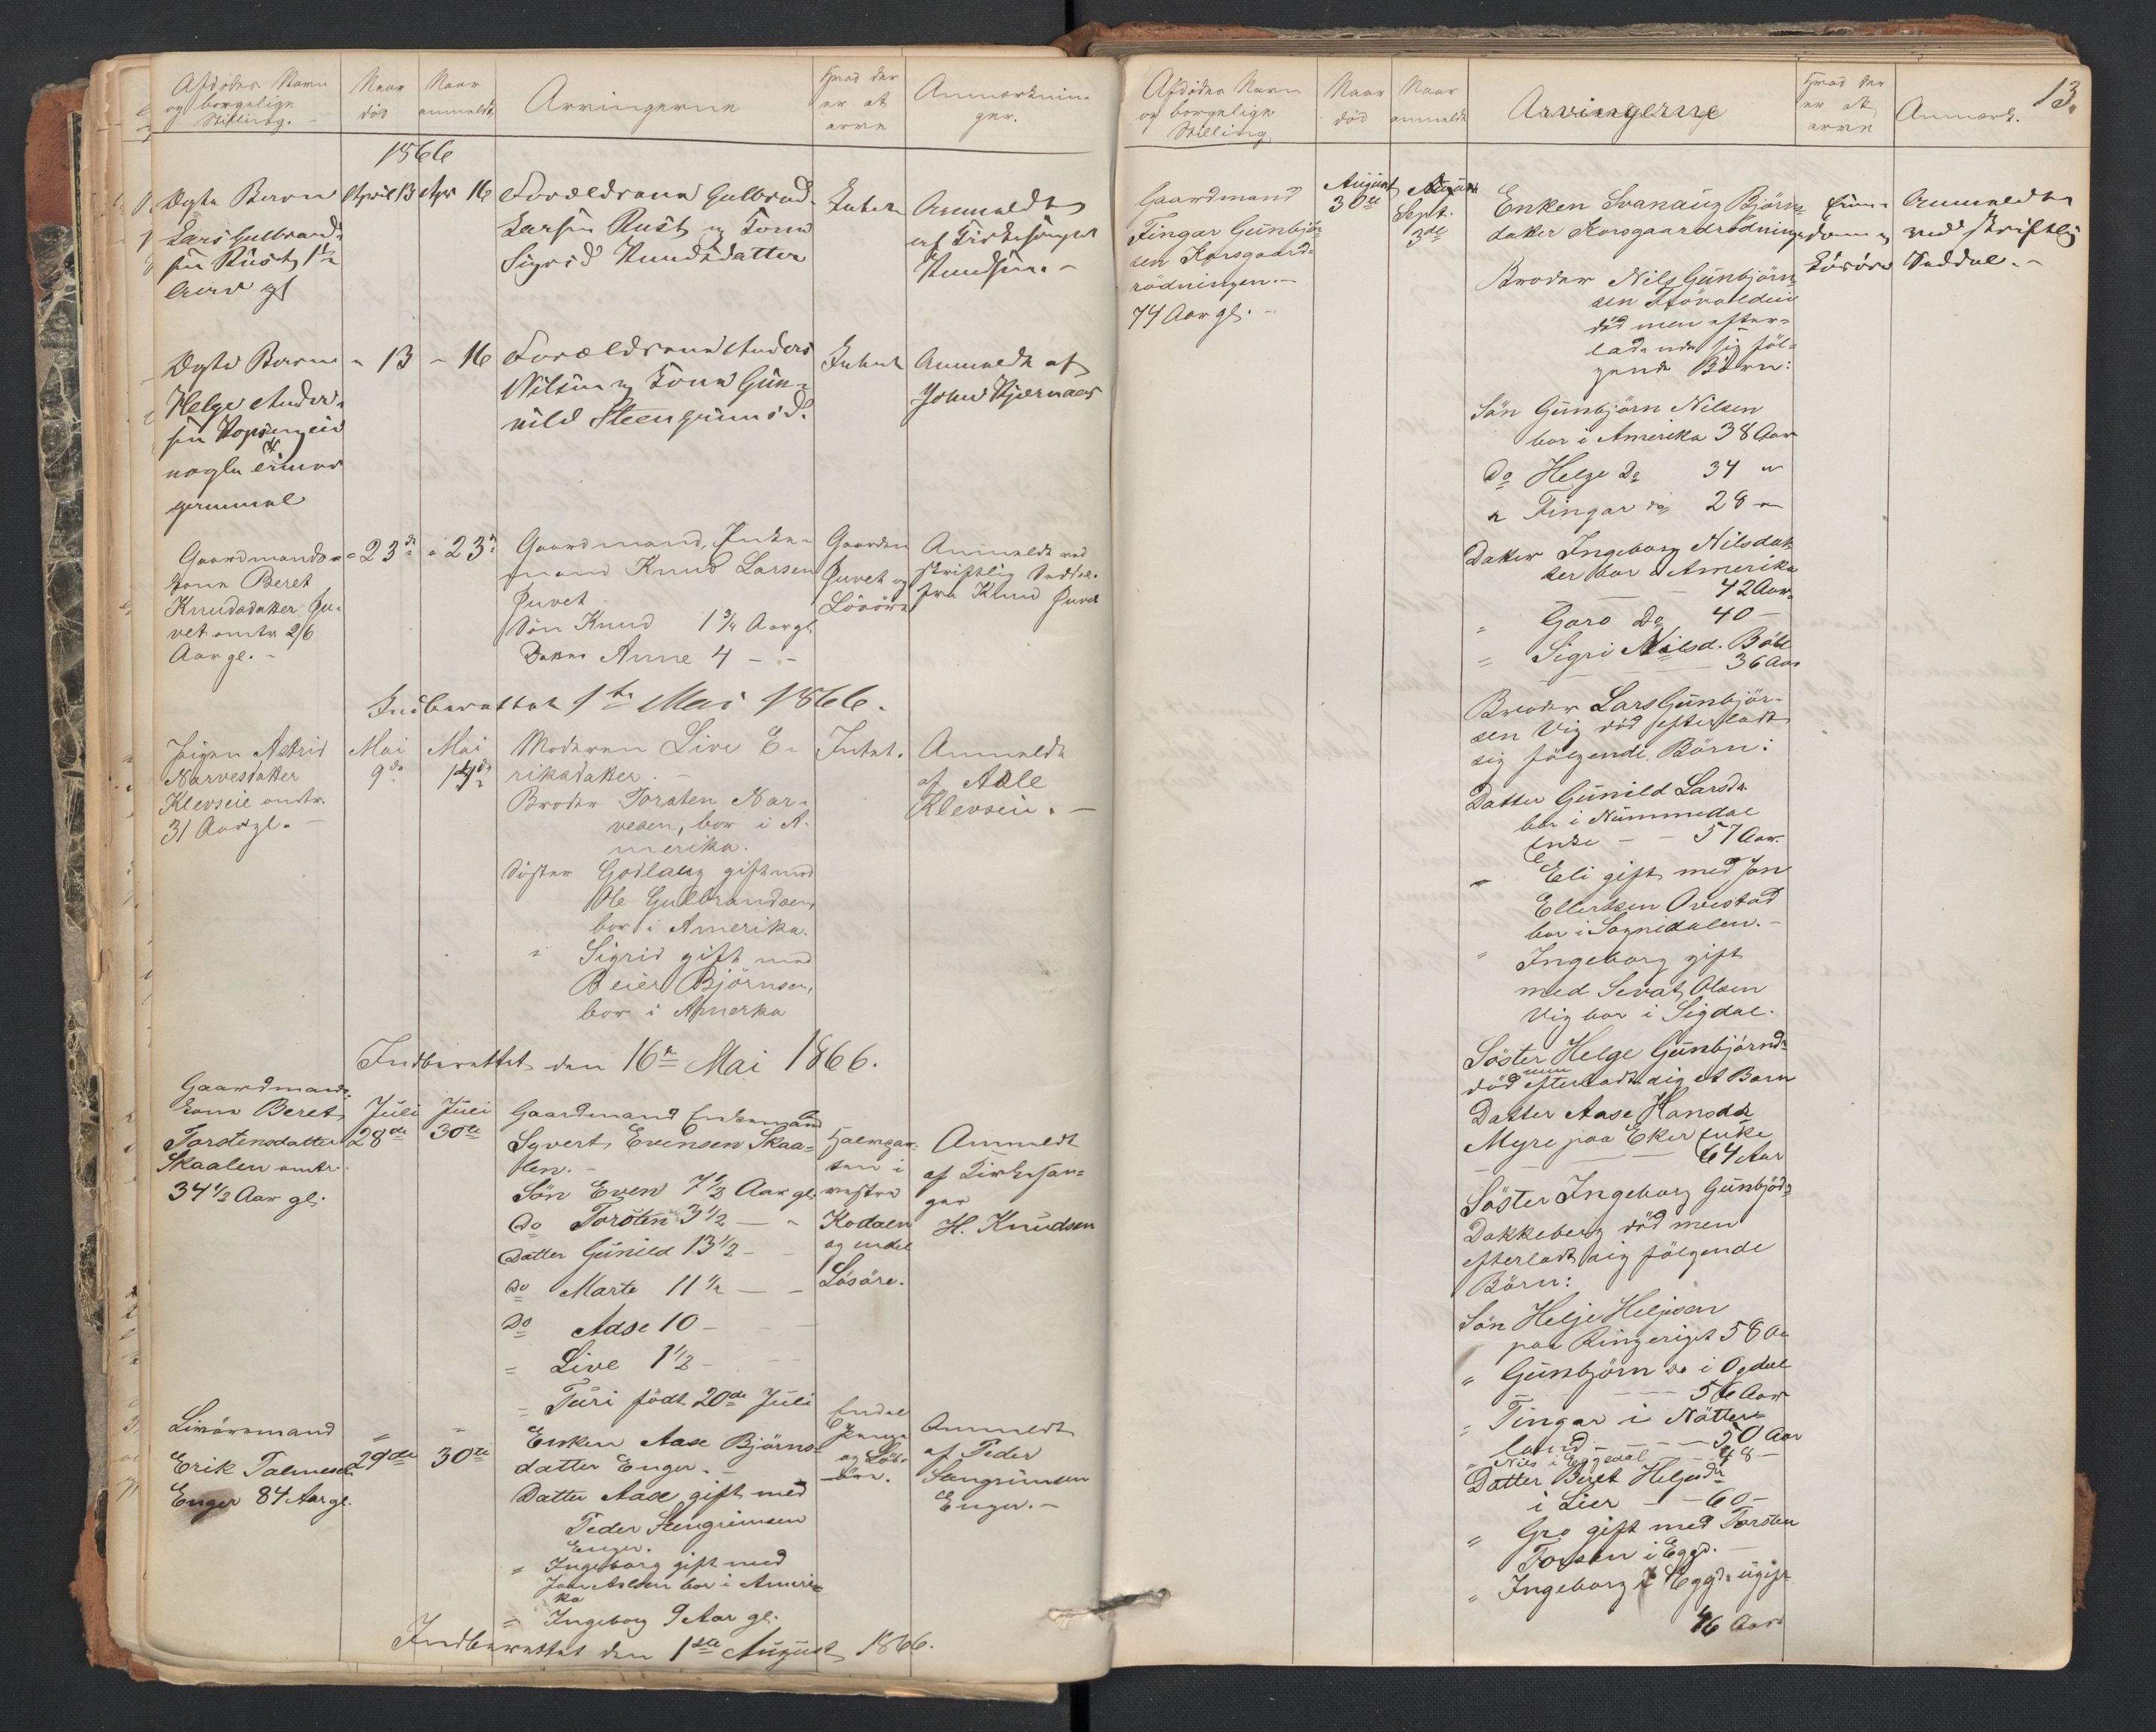 Afdödes Navn
og borgelige
Stilling.
Naar
död
Naar
anmeldt
Arvingerne
Hvad der
er at
arve
Anmærknin-
ger.
1866
Ægte Barn
Lars Gulbrand-
sen Rust, 1½
April 13
Apr 16
Forældrene Gulbrand
Larsen Rust og Kone
Sigrid Knudsdatter
Intet
Anmeldt
af Kirkesanger
Knudsen. -
Ægte Barn
Helge Anders-
sen
nogle
gammel
" 13
- 16
Forældrene Anders
Nilsen og Kone Gun-
nild Steengrimsd.
Intet
Anmeldt af
John
Gaardmands-
kone Beret
Knudsdatter Ju-
vet omtr 26
Aar gl. -
" 23de
" 23de
Gaardmand, Enke-
mand Knud Larsen
Juvet
Sön Knud 1¾ Aar gl.
Datter Anne 4 - -
Gaarden
Juvet og
Lösöre
Anmeldt ved
skriftlig Seddel
fra Knud Juvet
Indberettet 1te Mai 1866.
Pigen Astrid
Narvesdatter
Klevseie omtr.
31 Aar gl. -
Mai
9de
Mai
Moderen Live E-
riksdatter. -
Broder Torsten Nar-
vesen, bor i A-
merika.
Söster Godlaug gift med
Ole Gulbrandsen,
bor i Amerika.
" Sigrid gift med
Beier Björnsen,
bor i Amerka
Intet.
Anmeldt
af Adle
Klevseie. -
Indberettet den 16de Mai 1866.
Gaardmands-
kone Beret
Torstensdatter
Skaalen omtr.
34½ Aar gl.
Juli
28de
Juli
30te
Gaardmand Enkemand
Syvert Evensen Skaa-
len. -
Sön Even 7½ Aar gl.
Do Torsten 3½ - -
Datter Gunild 13½ - -
Do Marte 11½ - -
Do Adse 10 - -
" Live 1½ - - -
" Turi födt 20de Juli
Halvpar-
ten i
vestre
Kodalen
og endel
Lösöre.
Anmeldt
af Kirkesan-
ger
H. Knudsen
Livöresmand
Erik Talmesen
Enger 84 Aar gl.
"
29de
"
30te
Enken Aase Björns-
datter Enger. -
Datter Aase gift med
Peder Steengrimsen
Enger.
" Ingeborg gift med
bor i Ameri-
ka
" Ingeborg 9 Aar gl.
Endel
Penge
og Lös-
öre.
Anmeldt
af Peder
Enger. -
Indberettet den 1ste August 1866.
13.
Afdödes Navn
og borgelige
Stilling
Naar
död
Naar
anmeldt
Arvingerne
Hvad der
er at
arve
Anmærk.
Gaardmand
Fingar Gunbjörn-
sen Korsgaard-
rödningen. -
74 Aar gl. -
August
30te
Sept.
3de
Enken Svanaug Björns-
datter Korsgaardrödning
Broder Nils Gunbjörn-
sen
död men efter-
ladende sig föl-
gende Börn:
Sön Gunbjörn Nilsen
bor i Amerika 38 Aar
Do Helge Do 34 "
" Fingar Do 28 "
Datter Ingeborg Nilsdat-
ter bor i Amerika
42 Aar
" Goro Do 40 -
" Sigri Nilsd.
36 Aar
Broder Lars Gunbjör-
sen Vig död efterladt
sig fölgende Börn:
Datter Gunild Larsdr.
bor i Nummedal
Enke - - 57 Aar.
" Eli gift med Jon
Ellertsen Ovestad
bor i Sognidalen. -
" Ingeborg gift
med Sevat Olsen
Vig bor i Sigdal.
Söster Helge Gunbjörnd-
död men efterladt sig et Barn
Datter Aase Hansdr
Myre paa Eker Enke
64 Aar
Söster Ingeborg Gunbjöd-
Dokkeberg död men
efterladt sig fölgende
Börn:
Sön Helje Heljesen
paa Ringeriget 58 Aa
" Gunbjörn Do i Ogdal
56 Aar
" Fingar i Nötter-
land - - - 50 Aar
" Nils i Eggedal - - 48 -
Datter Beret Heljesdr
i Lier - - 60 -
" Gro gift med Torsten
i Eggd. -
" Ingeborg i Eggd. ugift
46 Aar
Eien-
dom og
Lösöre
Anmeldt
ved skriftlig
Seddel. -